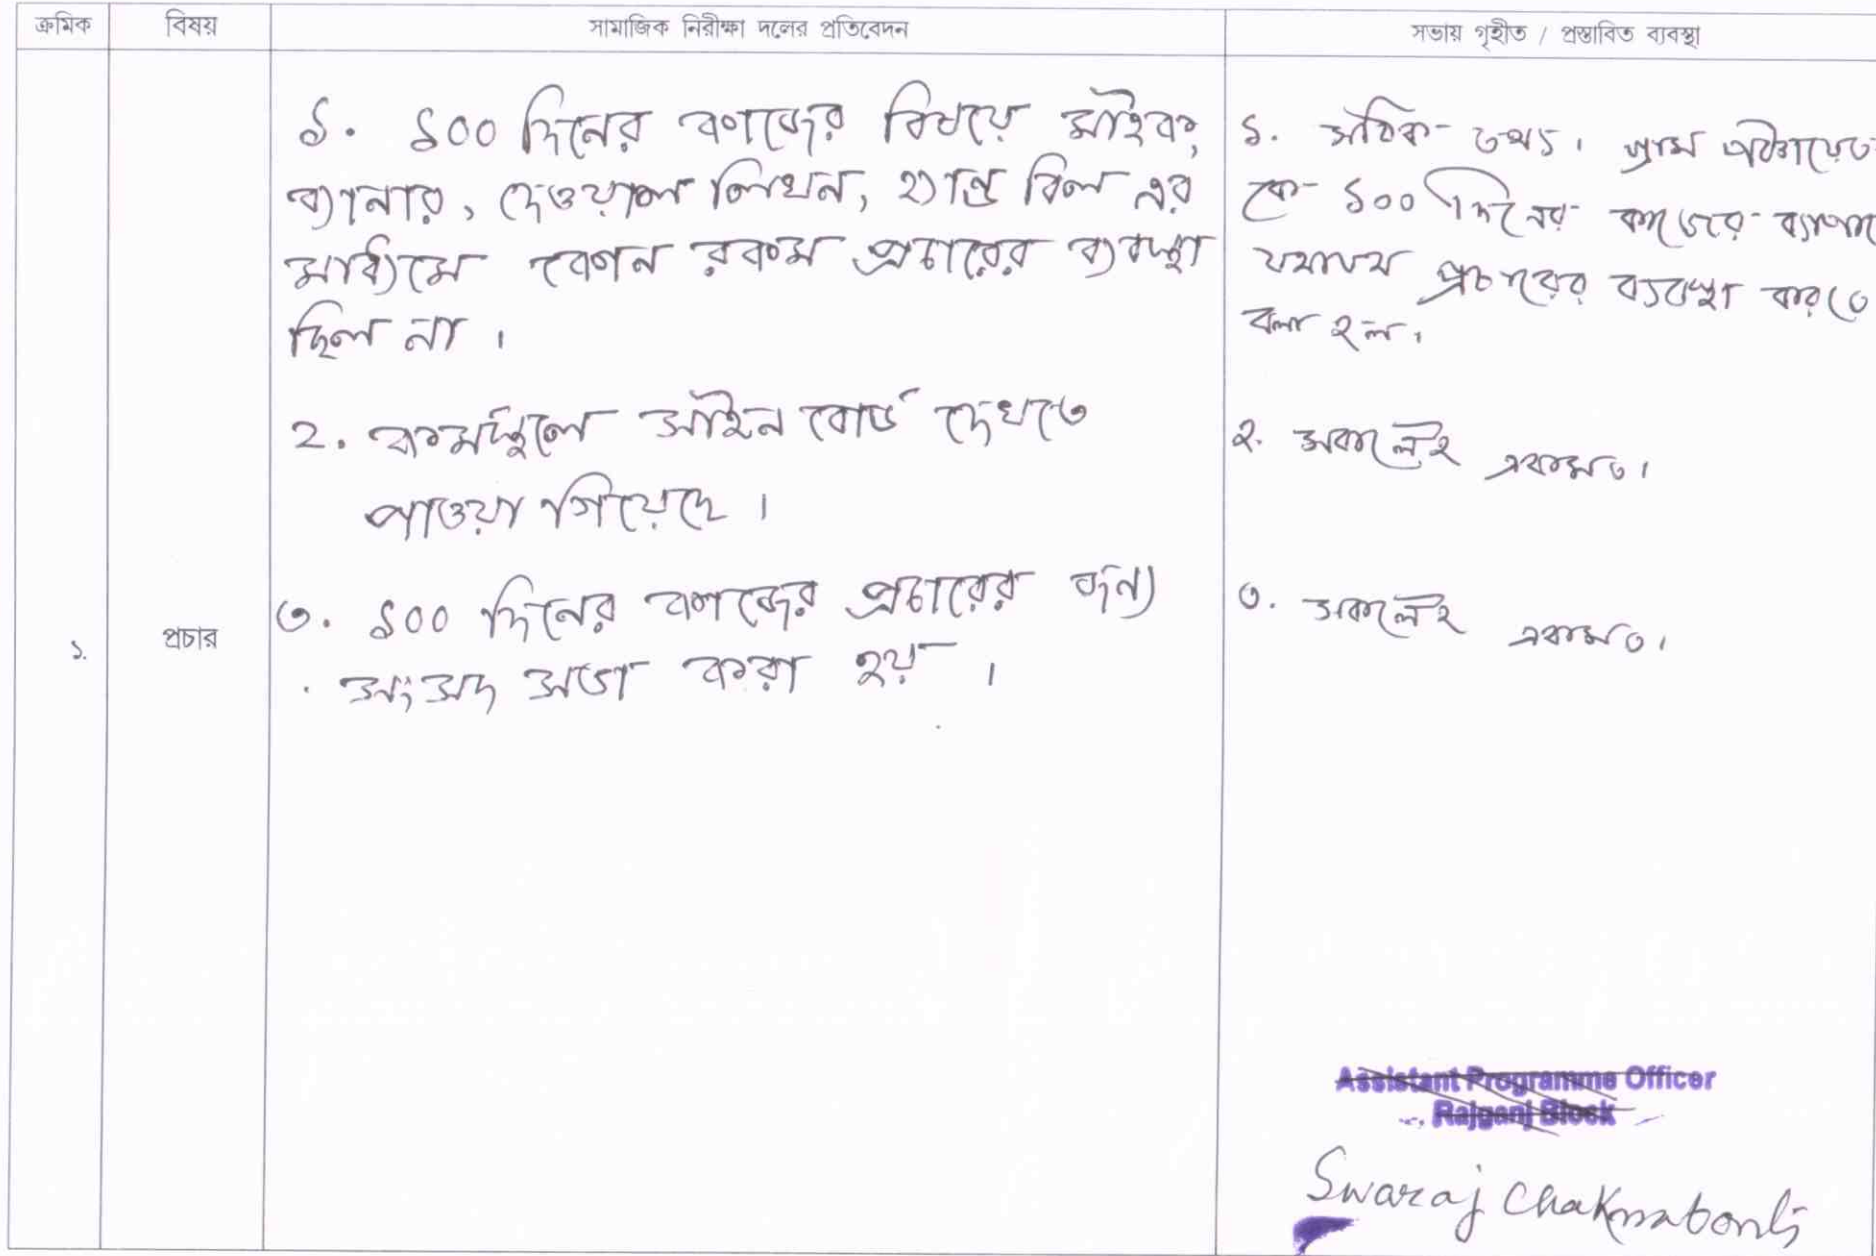 ক্রমিক
বিষয়
সামাজিক নিরীক্ষা দলের প্রতিবেদন
সভায় গৃহীত / প্রস্তাবিত ব্যবস্থা
১.
প্রচার
১. ১০০ দিনের কাজের বিষয়ে মাইক,
ব্যানার, দেওয়াল লিখন, হ্যান্ড বিল এর
মাধ্যমে কোন রকম প্রচারের ব্যবস্থা
ছিল না।
২. কর্মস্থলে সাইন বোর্ড দেখতে
পাওয়া গিয়েছে।
৩. ১০০ দিনের কাজের প্রচারের জন্য
সংসদ সভা করা হয়।
১. সঠিক তথ্য। গ্রাম পঞ্চায়েত
কে ১০০ দিনের কাজের ব্যাপারে
যথাযথ প্রচারের ব্যবস্থা করতে
বলা হল।
২. সকলেই একমত।
৩. সকলেই একমত।
Assistant Programme Officer
Rajganj Block
Swaraj Chakraborti